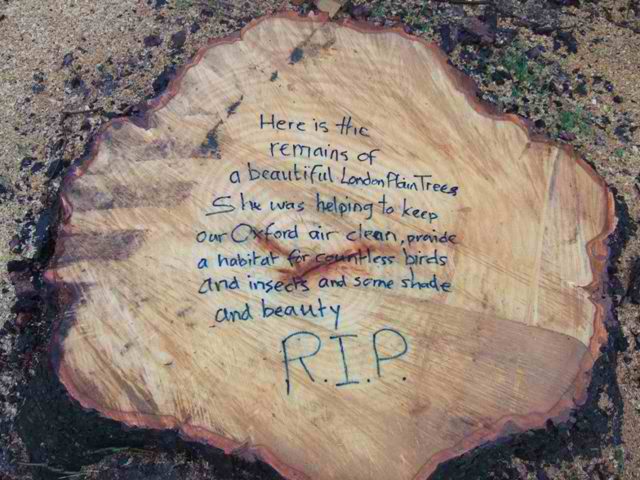 Here is the
remains of
a beautiful London Plain Trees
She was helping to keep
our Oxford air clean, provide
a habitat for countless birds
and insects and some shade
and beauty
R.I.P.